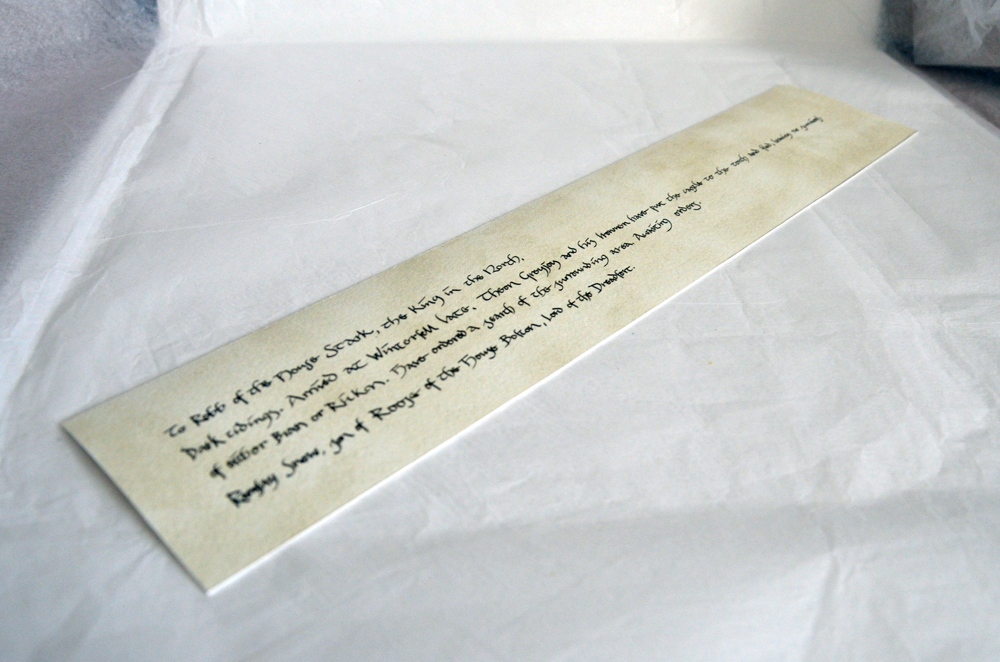 To Robb of the House Stark, the King in the North,
Dark tidings. Arrived at Winterfell late. Theon Greyjoy and his Ironmen have put the castle to the torch and fled, leaving no
of either Bran or Rickon. Have ordered a search of the surrounding area. Awaiting orders.
Ramsay Snow, son of Roose of the House Bolton, Lord of the Dreadfort.